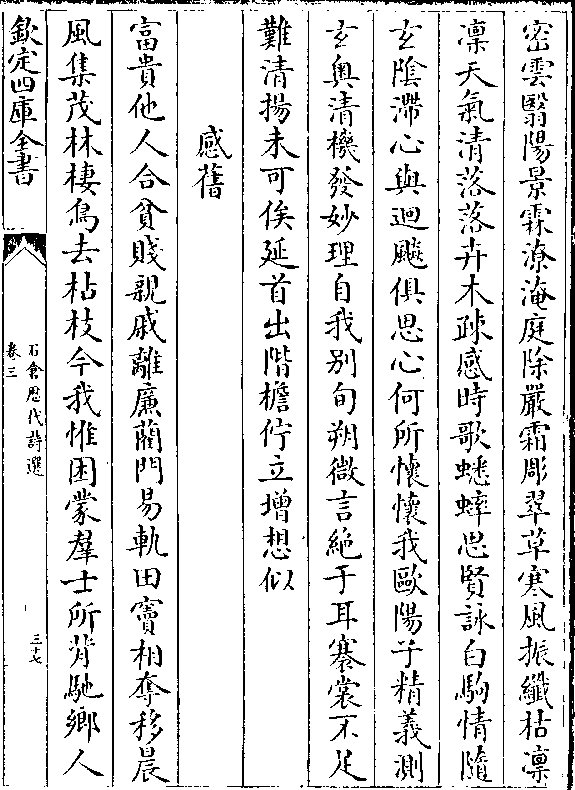 密雲翳陽景霖潦淹庭除嚴霜彫翠草寒風振纖枯凜
凜天氣清落落卉木疎感時歌蟋蟀思賢詠白駒情隨
玄陰滯心與迴飈俱思心何所懷懷我歐陽子精義測
玄奧清機發妙理自我别旬朔微言絶于耳褰裳不足
難清揚未可俟延首出階檐佇立增想似
感舊
富貴他人合貧賤親戚離廉藺門易軌田竇相奪移晨
風集茂林棲鳥去枯枝今我惟困蒙羣士所背馳鄉人
欽定四庫全書
石倉歴代詩選
卷三
三十七